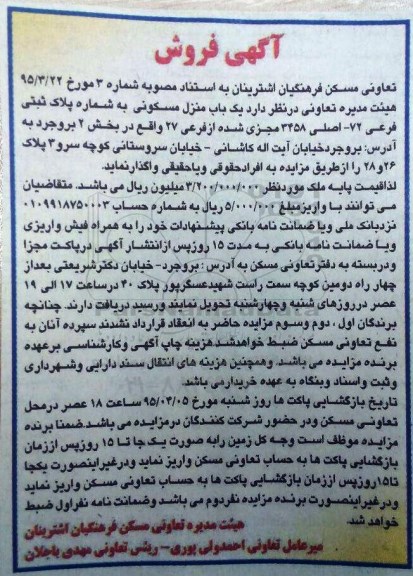 آگهی فروش
تعاونی مسکن فرهنگیان اشترینان به استناد مصوبه شماره ۳ مورخ ۹۵/۳/۲۲
هیئت مدیره تعاونی درنظر دارد یک باب منزل مسکونی به شماره پلاک ثبتی
فرعی ۷۲- اصلی ۳۴۵۸ مجزی شده ازفرعی ۲۷ واقع در بخش ۲ بروجرد به
آدرس: بروجردخیابان آیت اله کاشانی - خیابان سروستانی کوچه سرو۳ پلاک
۲۶و۲۸ را ازطریق مزایده به افرادحقوقی ویاحقیقی واگذارنماید.
لذاقیمت پایه ملک موردنظر ۳/۲۰۰/۰۰۰/۰۰۰میلیون ریال می باشد. متقاضیان
می توانند بـا واریز مبلغ ۵/۰۰۰/۰۰۰ ریال به شماره حساب ۰۱۰۹۹۱۸۷۵۰۰۰۳
نزدبانک ملی ویا ضمانت نامه بانکی پیشنهادات خود را به همراه فیش واریزی
ویـا ضمانت نامه بانکی به مدت ۱۵ روزپس ازانتشار آگهی درپاکت مجزا
ودربسته به دفترتعاونی مسکن به آدرس : بروجرد- خیابان دکترشریعتی بعداز
چهار راه دومین کوچه سمت راست شهیدعسگرپور پلاک ۴۰ درساعت ۱۷ الی ۱۹
عصر درروزهای شنبه وچهارشنبه تحویل نمایند ورسید دریافت دارند. چنانچه
برندگان اول ، دوم وسوم مزایده حاضر به انعقاد قرارداد نشدند سپرده آنان به
نفع تعاونی مسکن ضبط خواهدشد هزینه چاپ آگهی وکارشناسی برعهده
برنده مزایده می باشد. وهمچنین هزینه های انتقال سند دارایی وشهرداری
وثبت واسناد وبنگاه به عهده خریدارمی باشد.
تاریخ بازگشایی پاکت ها روز شنبه مورخ ۹۵/۰۴/۰۵ ساعت ۱۸ عصر درمحل
تعاونی مسکن ودر حضور شرکت کنندگان درمزایده می باشد.ضمنا برنده
مزایده موظف است وجه کل زمین رابه صورت یک جا تا ۱۵ روزپس اززمان
بازگشایی پاکت ها به حساب تعاونی مسکن واریز نماید ودرغیراینصورت یکجا
تا۱۵روزپس اززمان بازگشایی پاکت ها به حساب تعاونی مسکن واریز نماید
ودرغیراینصورت برنده مزایده نفردوم می باشد وضمانت نامه نفراول ضبط
خواهد شد.
هیئت مدیره تعاونی مسکن فرهنگیان اشترینان
میرعامل تعاونی احمدولی پوری - ریئس تعاونی مهدی باجلان